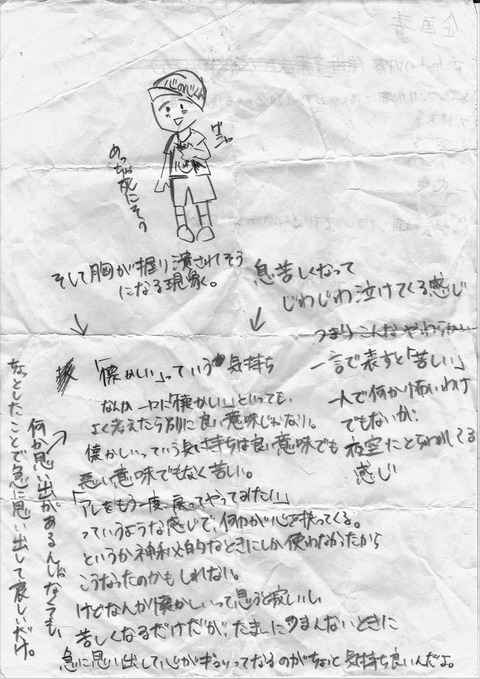 企画書
心のじくん
めっちゃ死にそう
そして胸が握り潰されてそう
になる現象。
息苦しくなって
じわじわ泣けてくる感じ
つまりこんなやわらかい
一言で表すと「苦しい」
一人で何か怖いわけ
でもないが
夜空にとらわれてる
感じ
「懐かしい」っていう気持ち
なんか一口に「懐かしい」といっても
よく考えたら別に良い意味じゃない。
懐かしいっていう気持ちは良い意味でも
悪い意味でもなく苦しい。
「アレをもう一度、戻ってやってみたい」
っていうような感じで、何かが心で
というか神秘的なときにしか使わなかったから
こうなったのかもしれない。
けどなんか懐かしいって思うと寂しいし
苦しくなるだけだが、たまにつまんないときに
急に思い出して心がギュッってなるのがちょっと気持ち良いんだよ。
何か思い出があるんじゃなくても、
ちょっとしたことで急に思い出して哀しいだけ。